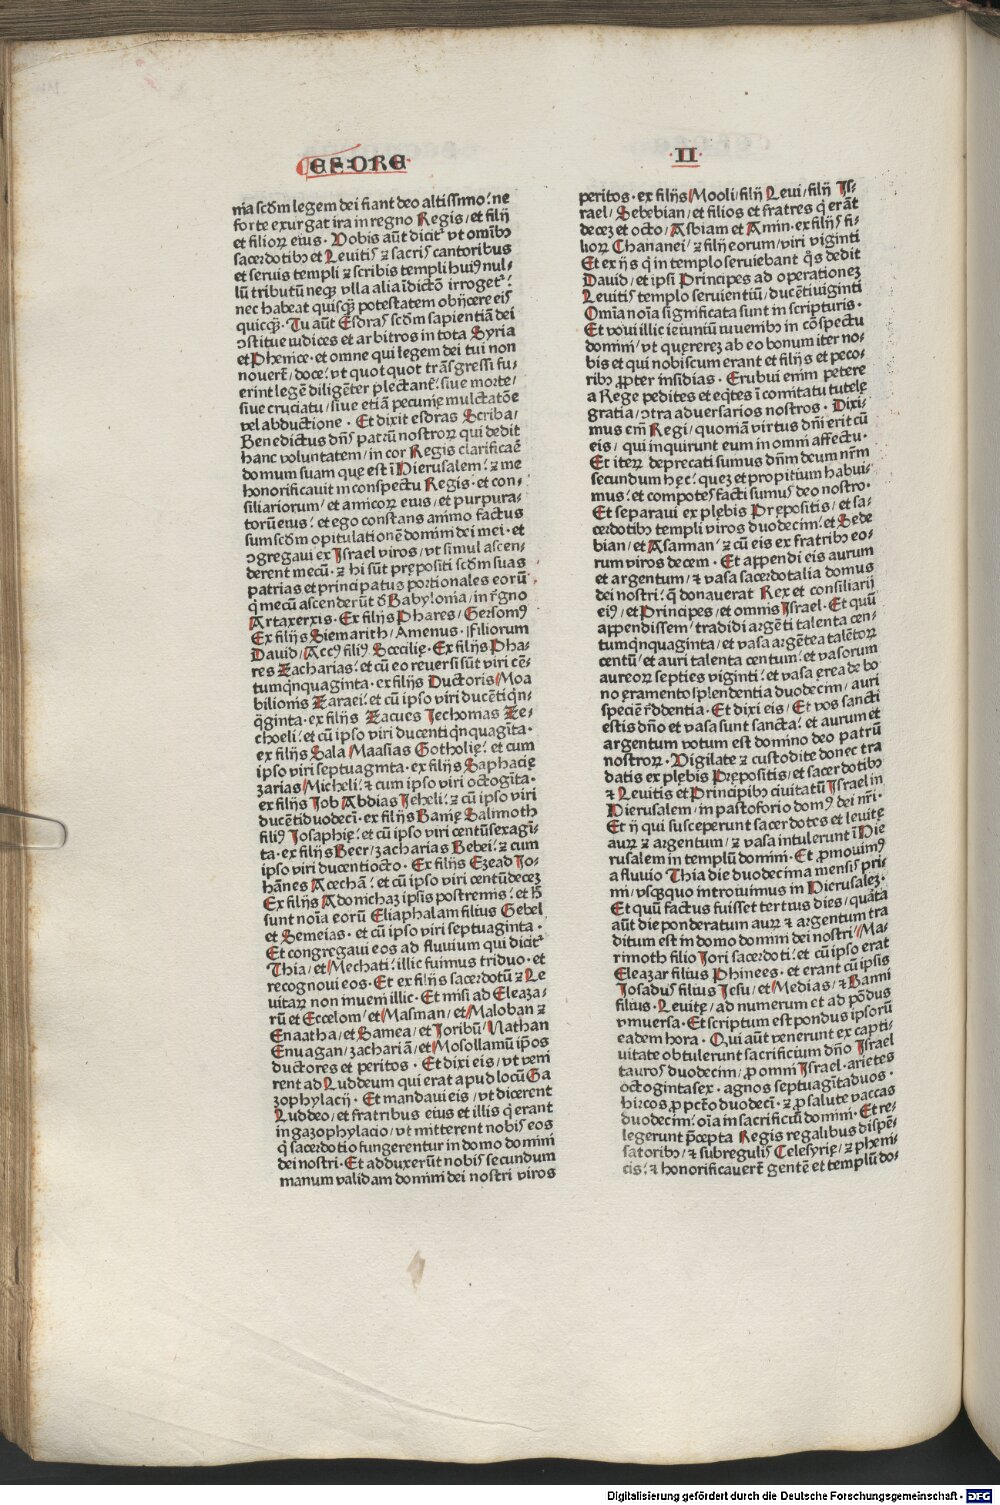 ESDRE
·II·
nia scdm legem dei fiant deo altissimo: ne
forte exurgat ira in regno Regis/et filij
et filioꝝ eius. Vobis aūt dicit᷑ vt omībꝫ
sacerdotibꝫ et Leuitis ⁊ sacris cantoribus
et seruis templi ⁊ scribis templi huiꝰ nul⸗
lū tributū neqꝫ vlla alia īdictō irroget᷑:
nec habeat quisqꝫ potestatem obijcere eis
quicqꝫ. Tu aūt Esdras scdm sapientiā dei
ↄstitue iudices et arbitros in tota Syria
et Phenice· et omne qui legem dei tui non
nouerēt/doce: vt quot quot trāsgressi fu⸗
erint legē diligēter plectant᷑: siue morte/
siue cruciatu/siue etiā pecunię mulctatōe
vel abductione · Et dixit esdras Scriba/
Benedictus dn̄s patrū nostroꝝ qui dedit
hanc voluntatem/in cor Regis clarificaē
domum suam quę est ī Hierusalem: ⁊ me
honorificauit in conspectu Regis· et con⸗
siliariorum/et amicoꝝ eius/et purpura⸗
torū eius: et ego constans animo factus
sum scdm opitulationē domini dei mei· et
ↄgregaui ex Israel viros/vt simul ascen⸗
derent mecū· ⁊ hi sūt prepositi scdm suas
patrias et principatus portionales eorū
q̇ mecū ascenderūt d̄ Babylonia/in r̄gno
Artaxerxis· Ex filijs Phares/Gersomꝰ
Ex filijs Siemarith/Amenus· Filiorum
Dauid/Accꝰ filiꝰ Scecilię· Ex filijs Pha⸗
res Zacharias: et cū eo reuersi sūt viri cē⸗
tumqnquaginta· ex filijs Ductoris Moa
bilionis Zaraei: et cū ipso viri ducēti qn⸗
q̄ginta· ex filijs Zacues Jechomas Ze⸗
choeli: et cū ipso viri ducenti qn quagīta·
ex filijs Sala Maasias Gotholię: et cum
ipso viri septuaginta· ex filijs Saphacię
zarias Micheli: ⁊ cum ipso viri octogīta·
ex filijs Job Abdias Jeheli: ⁊ cū ipso viri
ducēti duodecī· ex filijs Banię Salimoth
filiꝰ Josaphię: et cū ipso viri centū sexagī⸗
ta· ex filijs Beer/zacharias Bebei: ⁊ cum
ipso viri ducenti octo· Ex filijs Ezead Jo⸗
hānes Acechan: et cū ipso viri centū decez
Ex filijs Adonichaz ipsis postremis: et h̄
sunt noīa eorū Eliaphalam filius Gebel
et Semeias· et cū ipso viri septuaginta·
Et congregaui eos ad fluuium qui dicit᷑
Thia/et Mechati: illic fuimus triduo· et
recognoui eos· Et ex filijs sacerdotū ⁊ Le
uitaꝝ non inueni illic· Et misi ad Eleaza⸗
rū et Eccelom/et Masman/et Maloban ⁊
Enaatha/et Samea/et Joribū/Nathan
Enuagan/zachariā/et Mosollamū ip̄os
ductores et peritos · Et dixi eis/vt veni
rent ad Luddeum qui erat apud locū Ga
zophylacij · Et mandaui eis/vt dicerent
Luddeo/et fratribus eius et illis q̇ erant
in gazophylacio/vt mitterent nobis eos
q̇ sacerdotio fungerentur in domo domini
dei nostri· Et adduxerūt nobis secundum
manum validam domini dei nostri viros
peritos· ex filijs Mooli/filij Leui/filij Is⸗
rael/Sebebian/et filios et fratres q̇ erāt
decez et octo/Asbiam et Amin· ex filijs fi⸗
lioꝝ Chananei/⁊ filij eorum/viri viginti
Et ex ijs q̇ in templo seruiebant q̄s dedit
Dauid/et ipsi Principes ad operationez
Leuitis templo seruientiū/ducēti viginti
Omīa noīa significata sunt in scripturis·
Et voui illic ieiuniū iuuenibꝫ in cōspectu
domini/vt quererez ab eo bonum iter no⸗
bis et qui nobiscum erant et filijs et peco⸗
ribꝫ ꝓpter insidias · Erubui enim petere
a Rege pedites et eq̄tes ī comitatu tutelę
gratia/ↄtra aduersarios nostros · Dixi⸗
mus em̄ Regi/quoniā virtus dn̄i erit cū
eis/qui inquirunt eum in omni affectu·
Et iteꝝ deprecati sumus dn̄m deum nr̄m
secundum hęc: quez et propitium habui⸗
mus: et compotes facti sumus deo nostro·
Et separaui ex plębis Prępositis/et sa⸗
cerdotibꝫ templi viros duodecim: et Sede
bian/et Asaman: ⁊ cū eis ex fratribꝫ eo⸗
rum viros decem · Et appendi eis aurum
et argentum/⁊ vasa sacerdotalia domus
dei nostri: q̄ donauerat Rex et consiliarij
eiꝰ/et Principes/et omnis Israel· Et quū
appendissem/tradidi argēti talenta cen⸗
tumqnquaginta/et vasa argētea talētoꝝ
centū/et auri talenta centum: et vasorum
aureoꝝ septies viginti: et vasa ęrea de bo
no ęramento splendentia duodecim/auri
speciē r̄ddentia· Et dixi eis/Et vos sancti
estis dn̄o et vasa sunt sancta: et aurum et
argentum votum est domino deo patrū
nostroꝝ· Vigilate ⁊ custodite donec tra
datis ex plębis Prępositis/et sacerdotibꝫ
⁊ Leuitis et Principibꝫ ciuitatū Israel in
Hierusalem/in pastoforio domꝰ dei nr̄i·
Et ij qui susceperunt sacerdotes et leuitę
auꝝ ⁊ argentum/⁊ vasa intulerunt ī Hie
rusalem in templū domini· Et ꝓmouimꝰ
a fluuio Thia die duodecima mensis pri⸗
mi/vsqꝫquo introiuimus in Hierusalez·
Et quū factus fuisset tertius dies/quarta
aūt die ponderatum auꝝ ⁊ argentum tra
ditum est in domo domini dei nostri/Ma⸗
rimoth filio Jori sacerdoti: et cū ipso erat
Eleazar filius Phinees· et erant cū ipsis
Josadus filius Jesu/et Medias/⁊ Banni
filius· Leuitę/ad numerum et ad pōdus
vniuersa· Et scriptum est pondus ipsorū
eadem hora· Qui aūt venerunt ex capti⸗
uitate obtulerunt sacrificium dn̄o Israel
tauros duodecim/ꝓ omni Israel· arietes
octogintasex· agnos septuagītaduos·
hircos ꝓ pctō duodecī· ⁊ ꝓ salute vaccas
duodecim: oīa in sacrificiū domini· Et re⸗
legerunt p̄cepta Regis regalibus dispē⸗
satoribꝫ/⁊ subregulis Celesyrię/⁊ pheni⸗
cis: ⁊ honorificauerūt gentē et templū do⸗
Digitalisierung gefördert durch die Deutsche Forschungsgemeinschaft - DFG